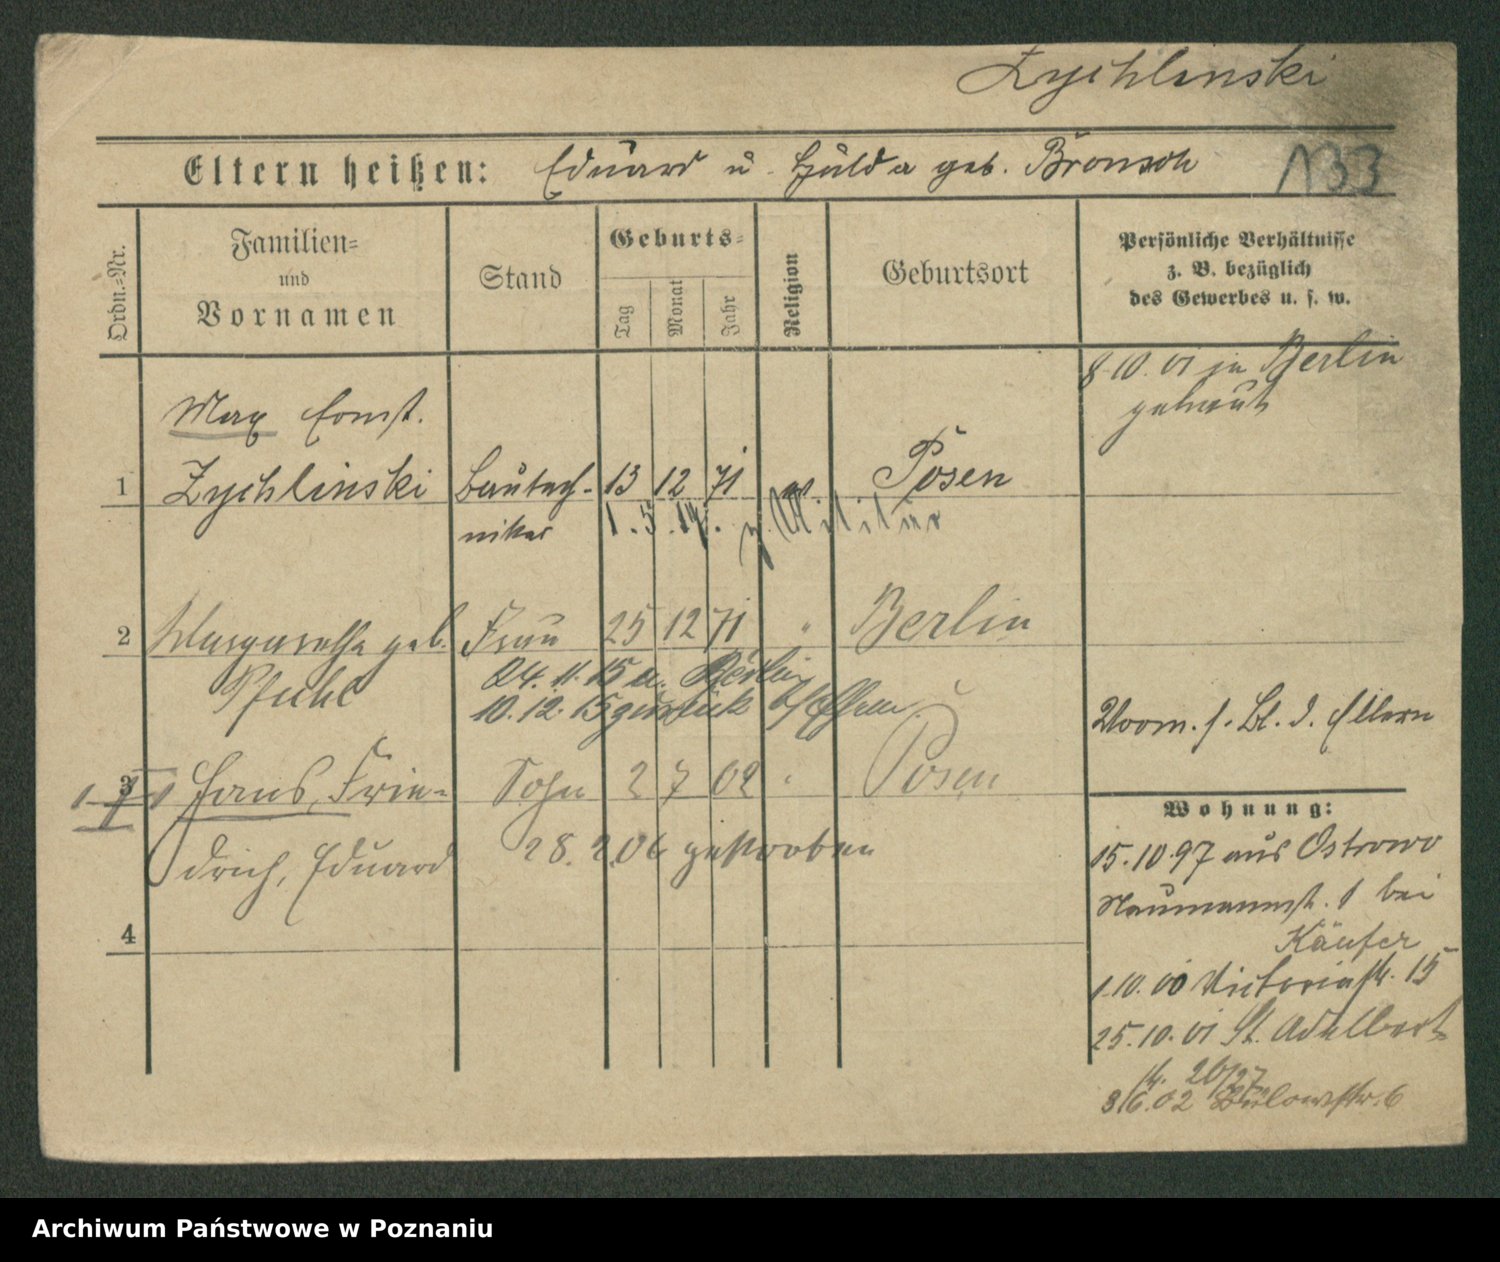 Zychlinski
Eltern heißen: Eduard u. Hulda geb. Bronsch
133
Ordn.-Nr.
Familien-
und
Vornamen
Stand
Geburts-
Tag
Monat
Jahr
Religion
Geburtsort
Persönliche Verhältnisse
z. B. bezüglich
des Gewerbes u. s. w.
8.10.01 in Berlin
getraut
Max Ernst.
1 Zychlinski Bautech- 13 12 71 Posen
niker 1.5.17. z. Militär
2 Margarethe geb. Frau 25 12 71 " Berlin
Pfuhl 24.11.15 n. Berlin
10.12.15 zurück
3 Hans, Frie- Sohn 2 7 02 " Posen
drich, Eduard 28.2.06 gestorben
4
Vorm. s. Bl. d. Eltern
Wohnung:
15.10.97 aus Ostrowo
Naumannstr. 1 bei
Käufer
1.10.00 Victoriastr. 15
25.10.01 St. Adalbert
str. 26/27
3/6.02 Bülowstr. 6
Archiwum Państwowe w Poznaniu